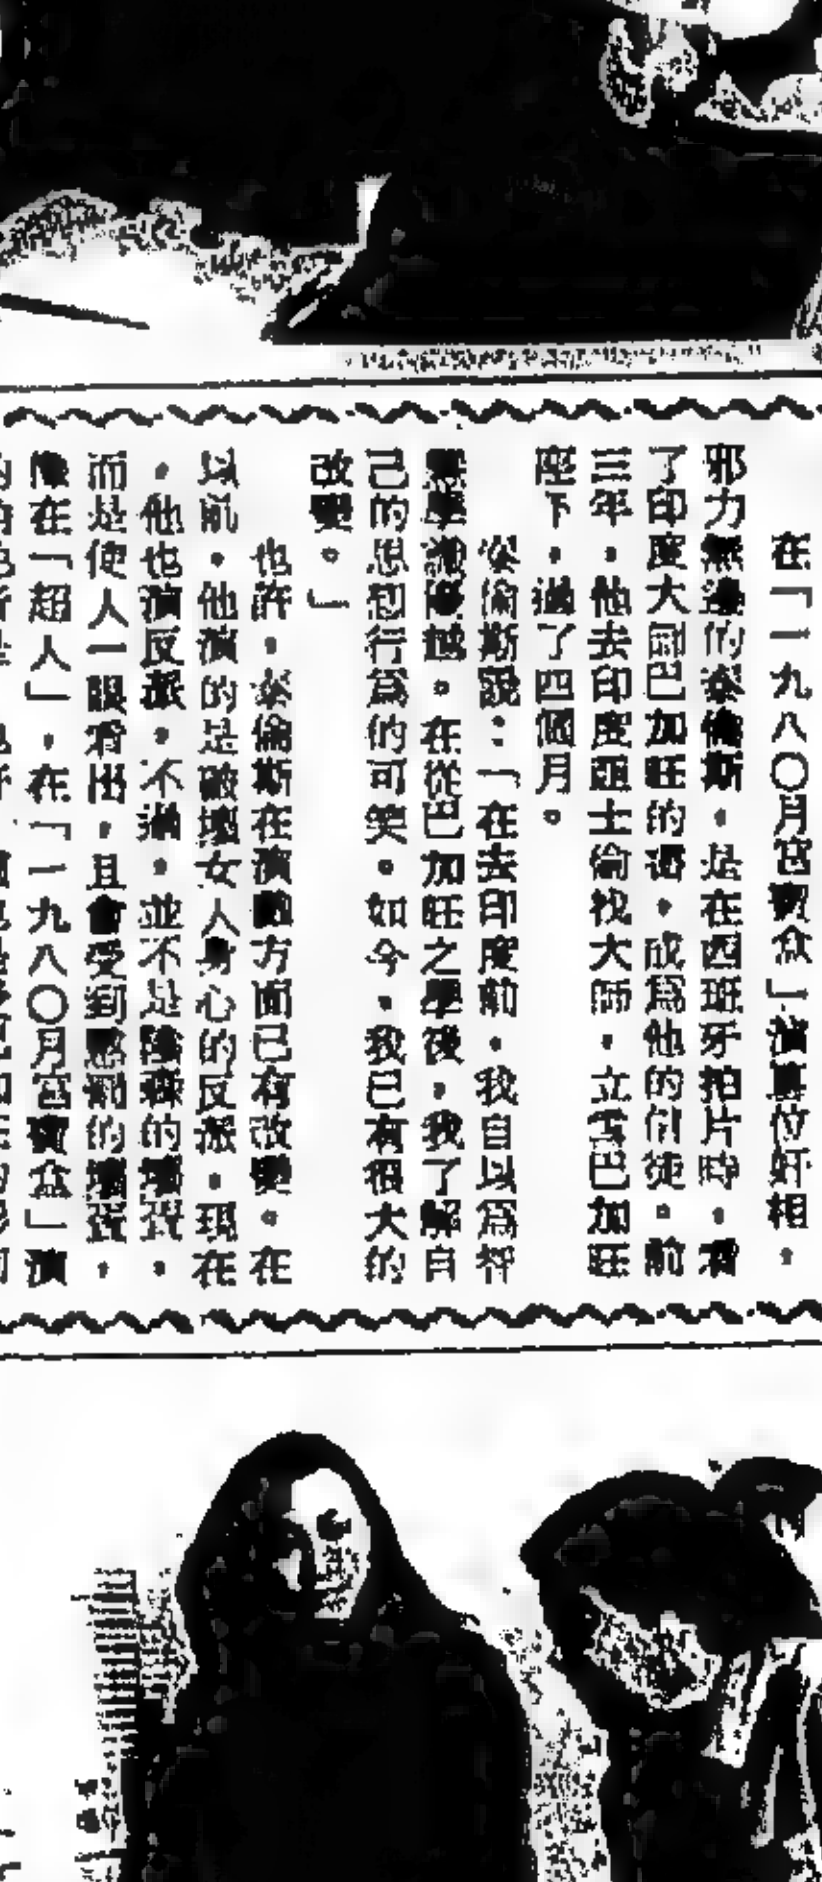 在「一九八〇月宮寶盒」演這位奸相,
邪力無邊的泰倫斯,是在西班牙拍片時,看
了印度大師巴加旺的書,成爲他的信徒。前
三年,他去印度 士 找大師,立雪巴加旺
座下,過了四個月。
泰倫斯說:「在去印度前,我自以爲智
學識 。在從巴加旺之學後,我了解自
己的思想行爲的可笑。如今,我已有很大的
改變。」
也許,泰倫斯在演戲方面已有改變。在
以前,他演的是破壞女人身心的反派,現在
,他也演反派,不過,並不是陰森的壞蛋,
而是使人一眼看出,且會受到懲罰的壞蛋,
像在「超人」,在「一九八〇月宮寶盒」演